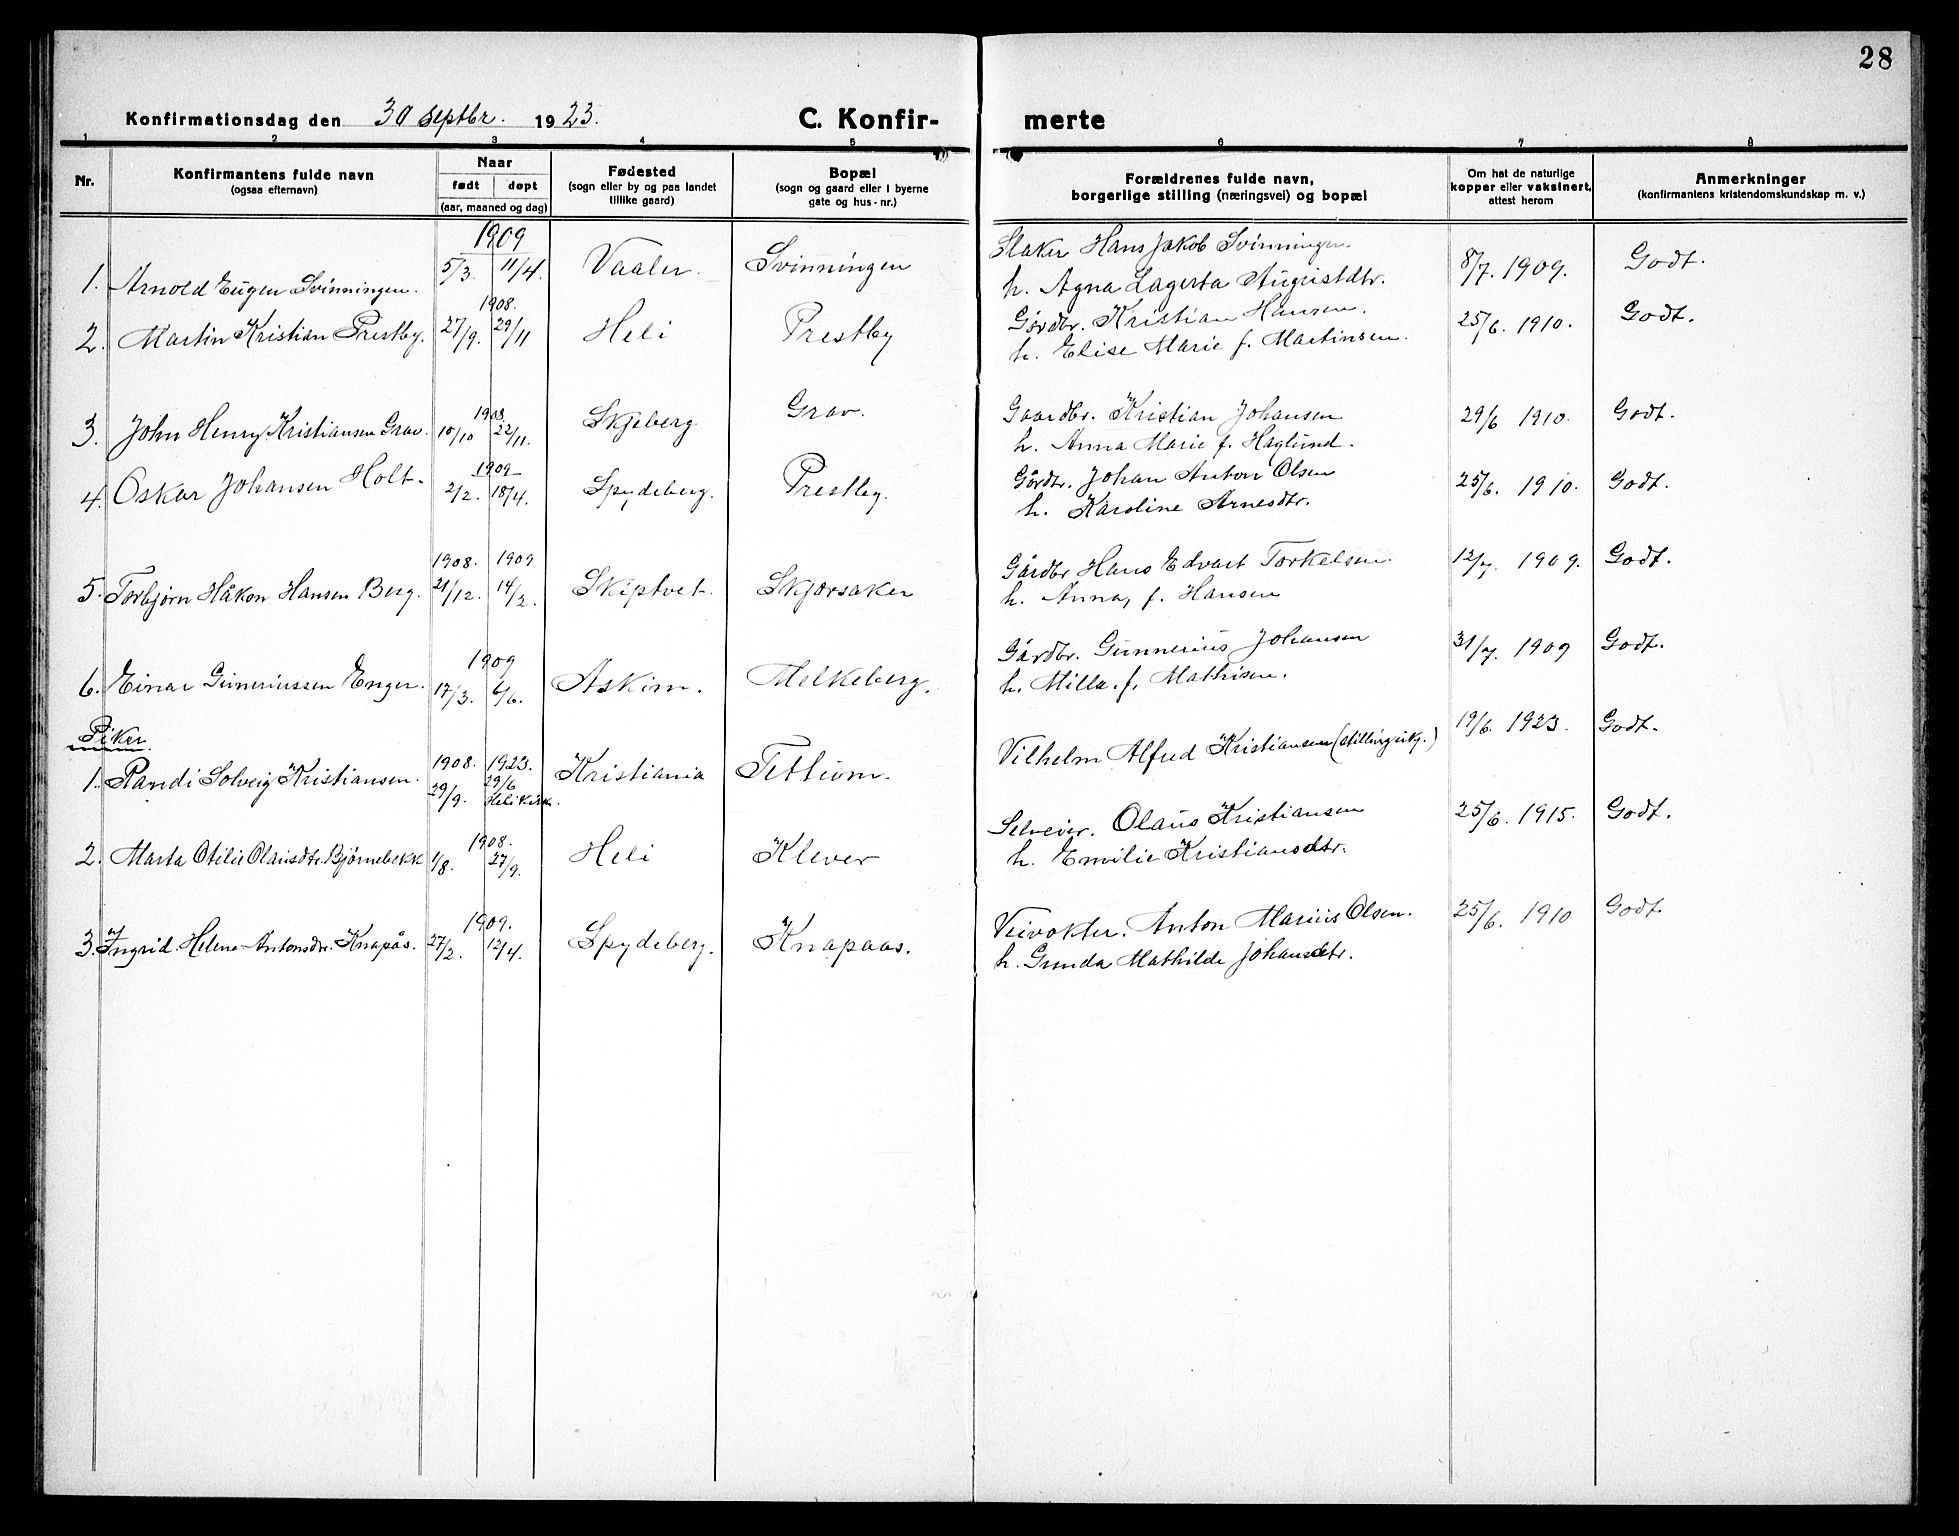 28
Konfirmationsdag den 30 septbr. 1923. C. Konfir- merte
1 2 3 4 5 6 7 8
Nr. Konfirmantens fulde navn (ogsaa efternavn) Naar født døpt (aar, maaned og dag) Fødested (sogn eller by og paa landet tillike gaard) Bopæl (sogn og gaard eller i byerne gate og hus-nr.) Forældrenes fulde navn, borgerlige stilling (næringsvei) og bopæl Om hat de naturlige kopper eller vaksinert, attest herom Anmerkninger (konfirmantens kristendomskundskap m. v.)
1909
1. Arnold Eugen Svinningen. 5/3. 11/4. Vaaler. Svinningen Hans Jakob Svinningen. 8/7. 1909. Godt.
h. Agna Lagerta Augustdtr.
1908.
2. Martin Kristian Prestby. 27/9. 29/11 Heli Prestby Gårdbr. Kristian Hansen. 25/6. 1910. Godt.
h. Elise Marie f. Martinsen.
1908
3. John Henry Kristiansen Grav. 10/10 22/11. Skjeberg Grav. Gaardbr. Kristian Johansen 29/6 1910. Godt.
h. Anna Marie f. Haglund.
1909
4. Oskar Johansen Holt. 2/2. 18/4. Spydeberg. Prestby. Gårdbr. Johan Anton Olsen 25/6. 1910. Godt.
h. Karoline Arnesdtr.
1908. 1909
5. Torbjørn Håkon Hansen Berg. 21/12. 14/2. Skiptvet. Skjorsaker Gårdbr Hans Edvart Torkelsen. 12/7. 1909. Godt.
h. Anna, f. Hansen
1909
6. Einar Guneriussen Enger. 17/3. 6/6. Askim. Melkeberg. Gårdbr. Gunnerius Johansen 31/7. 1909 Godt.
h. Milla. f. Mathisen.
Piker.
1908. 1923.
1. Randi Solveig Kristiansen. 29/9. 29/6 Heli kirk. Kristiania Tettum. Vilhelm Alfred Kristiansen (stilling uk.) 19/6. 1923. Godt.
1908.
2. Marta Otilie Olausdtr. Bjørnebekk 1/8. 27/9. Heli Klever Selveier. Olaus Kristiansen 25/6. 1915. Godt.
h. Emilie Kristiansdtr.
1909.
3. Ingrid. Helene Antonsdtr. Knapås. 27/2. 12/4. Spydeberg. Knapaas. Veivokter. Anton Marius Olsen. 25/6. 1910 Godt.
h. Gunda Mathilde Johansdtr.